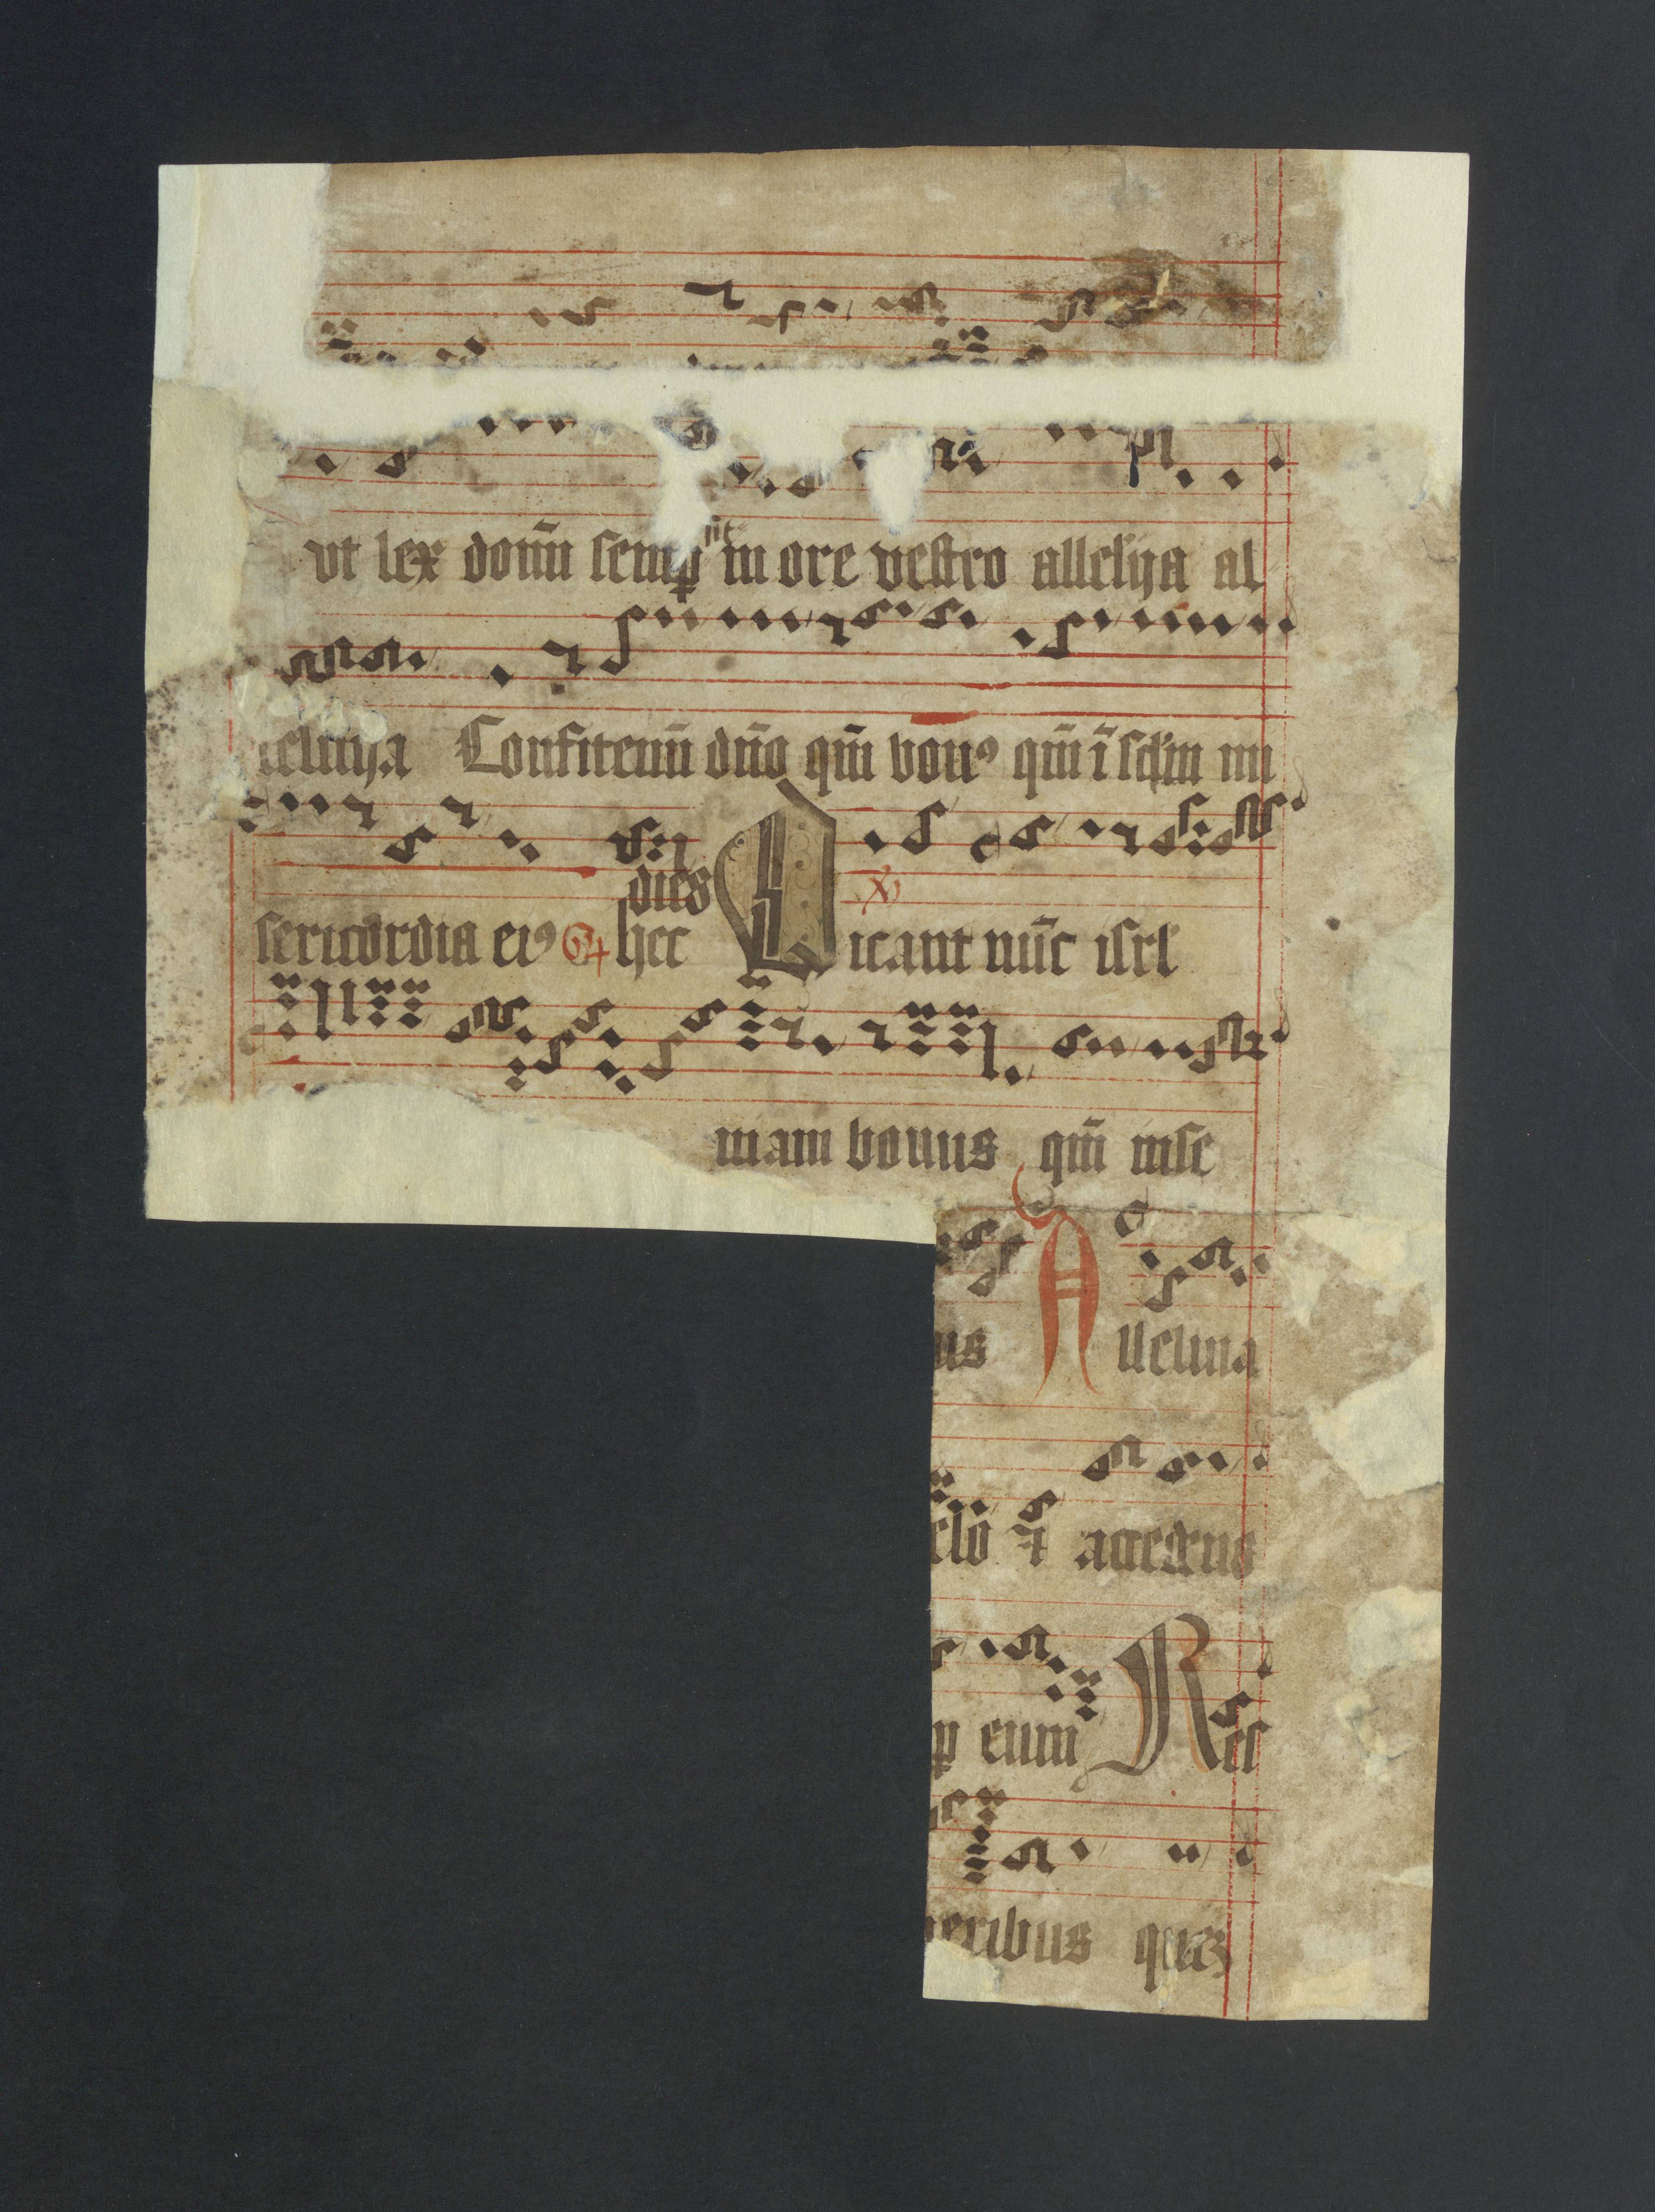 vt lex domī semꝑ sit in ore vestro allelỹa al
leluya Confitemī dn̄o qm̄ bonꝰ qm̄ ī sclm̄ mi
sericordia eiꝰ Gͬ hec dies Dicant nūc isrl̄ v
niam bonus qm̄ in se
us Alleluia
celo ⁊ accedens
sup eum Res
eribus quez